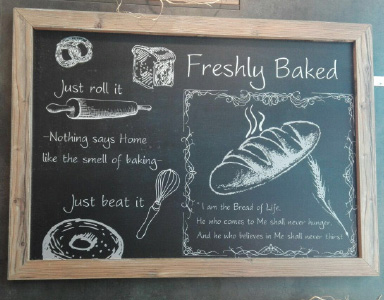 Freshly Baked
Just roll it
~Nothing says Home
like the smell of baking~
Just beat it
"I am the Bread of Life.
He who comes to Me shall never hunger.
And he who believes in Me shall never thirst